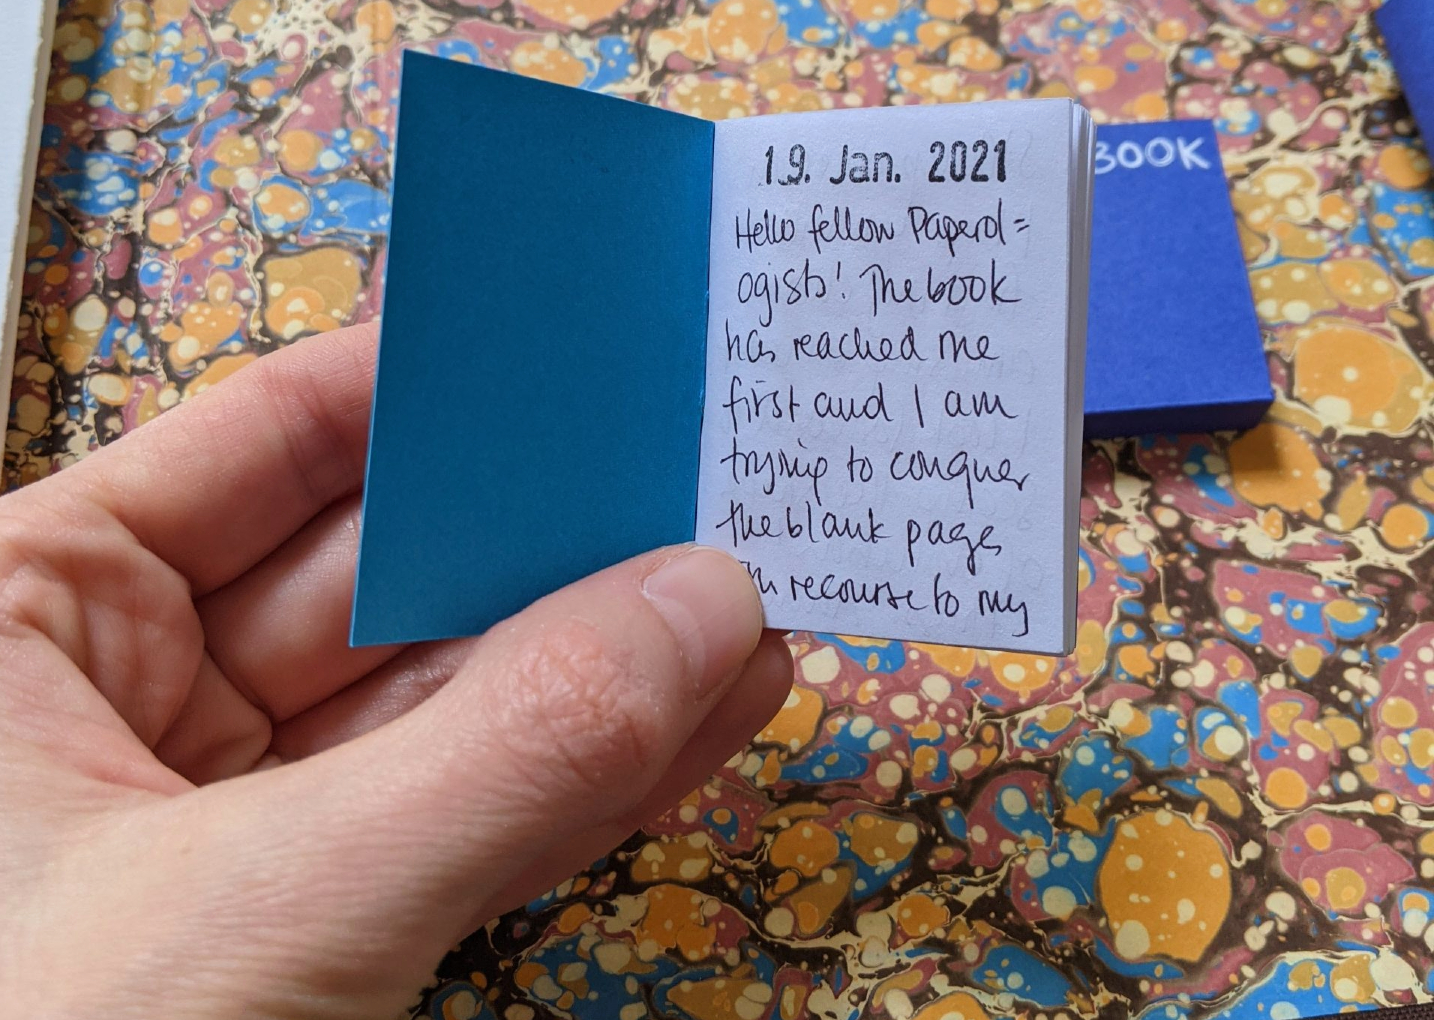 19. Jan. 2021
Hello fellow Paperol=
ogists! The book
has reached me
first and I am
trying to conquer
the blank pages
recourse to my
BOOK